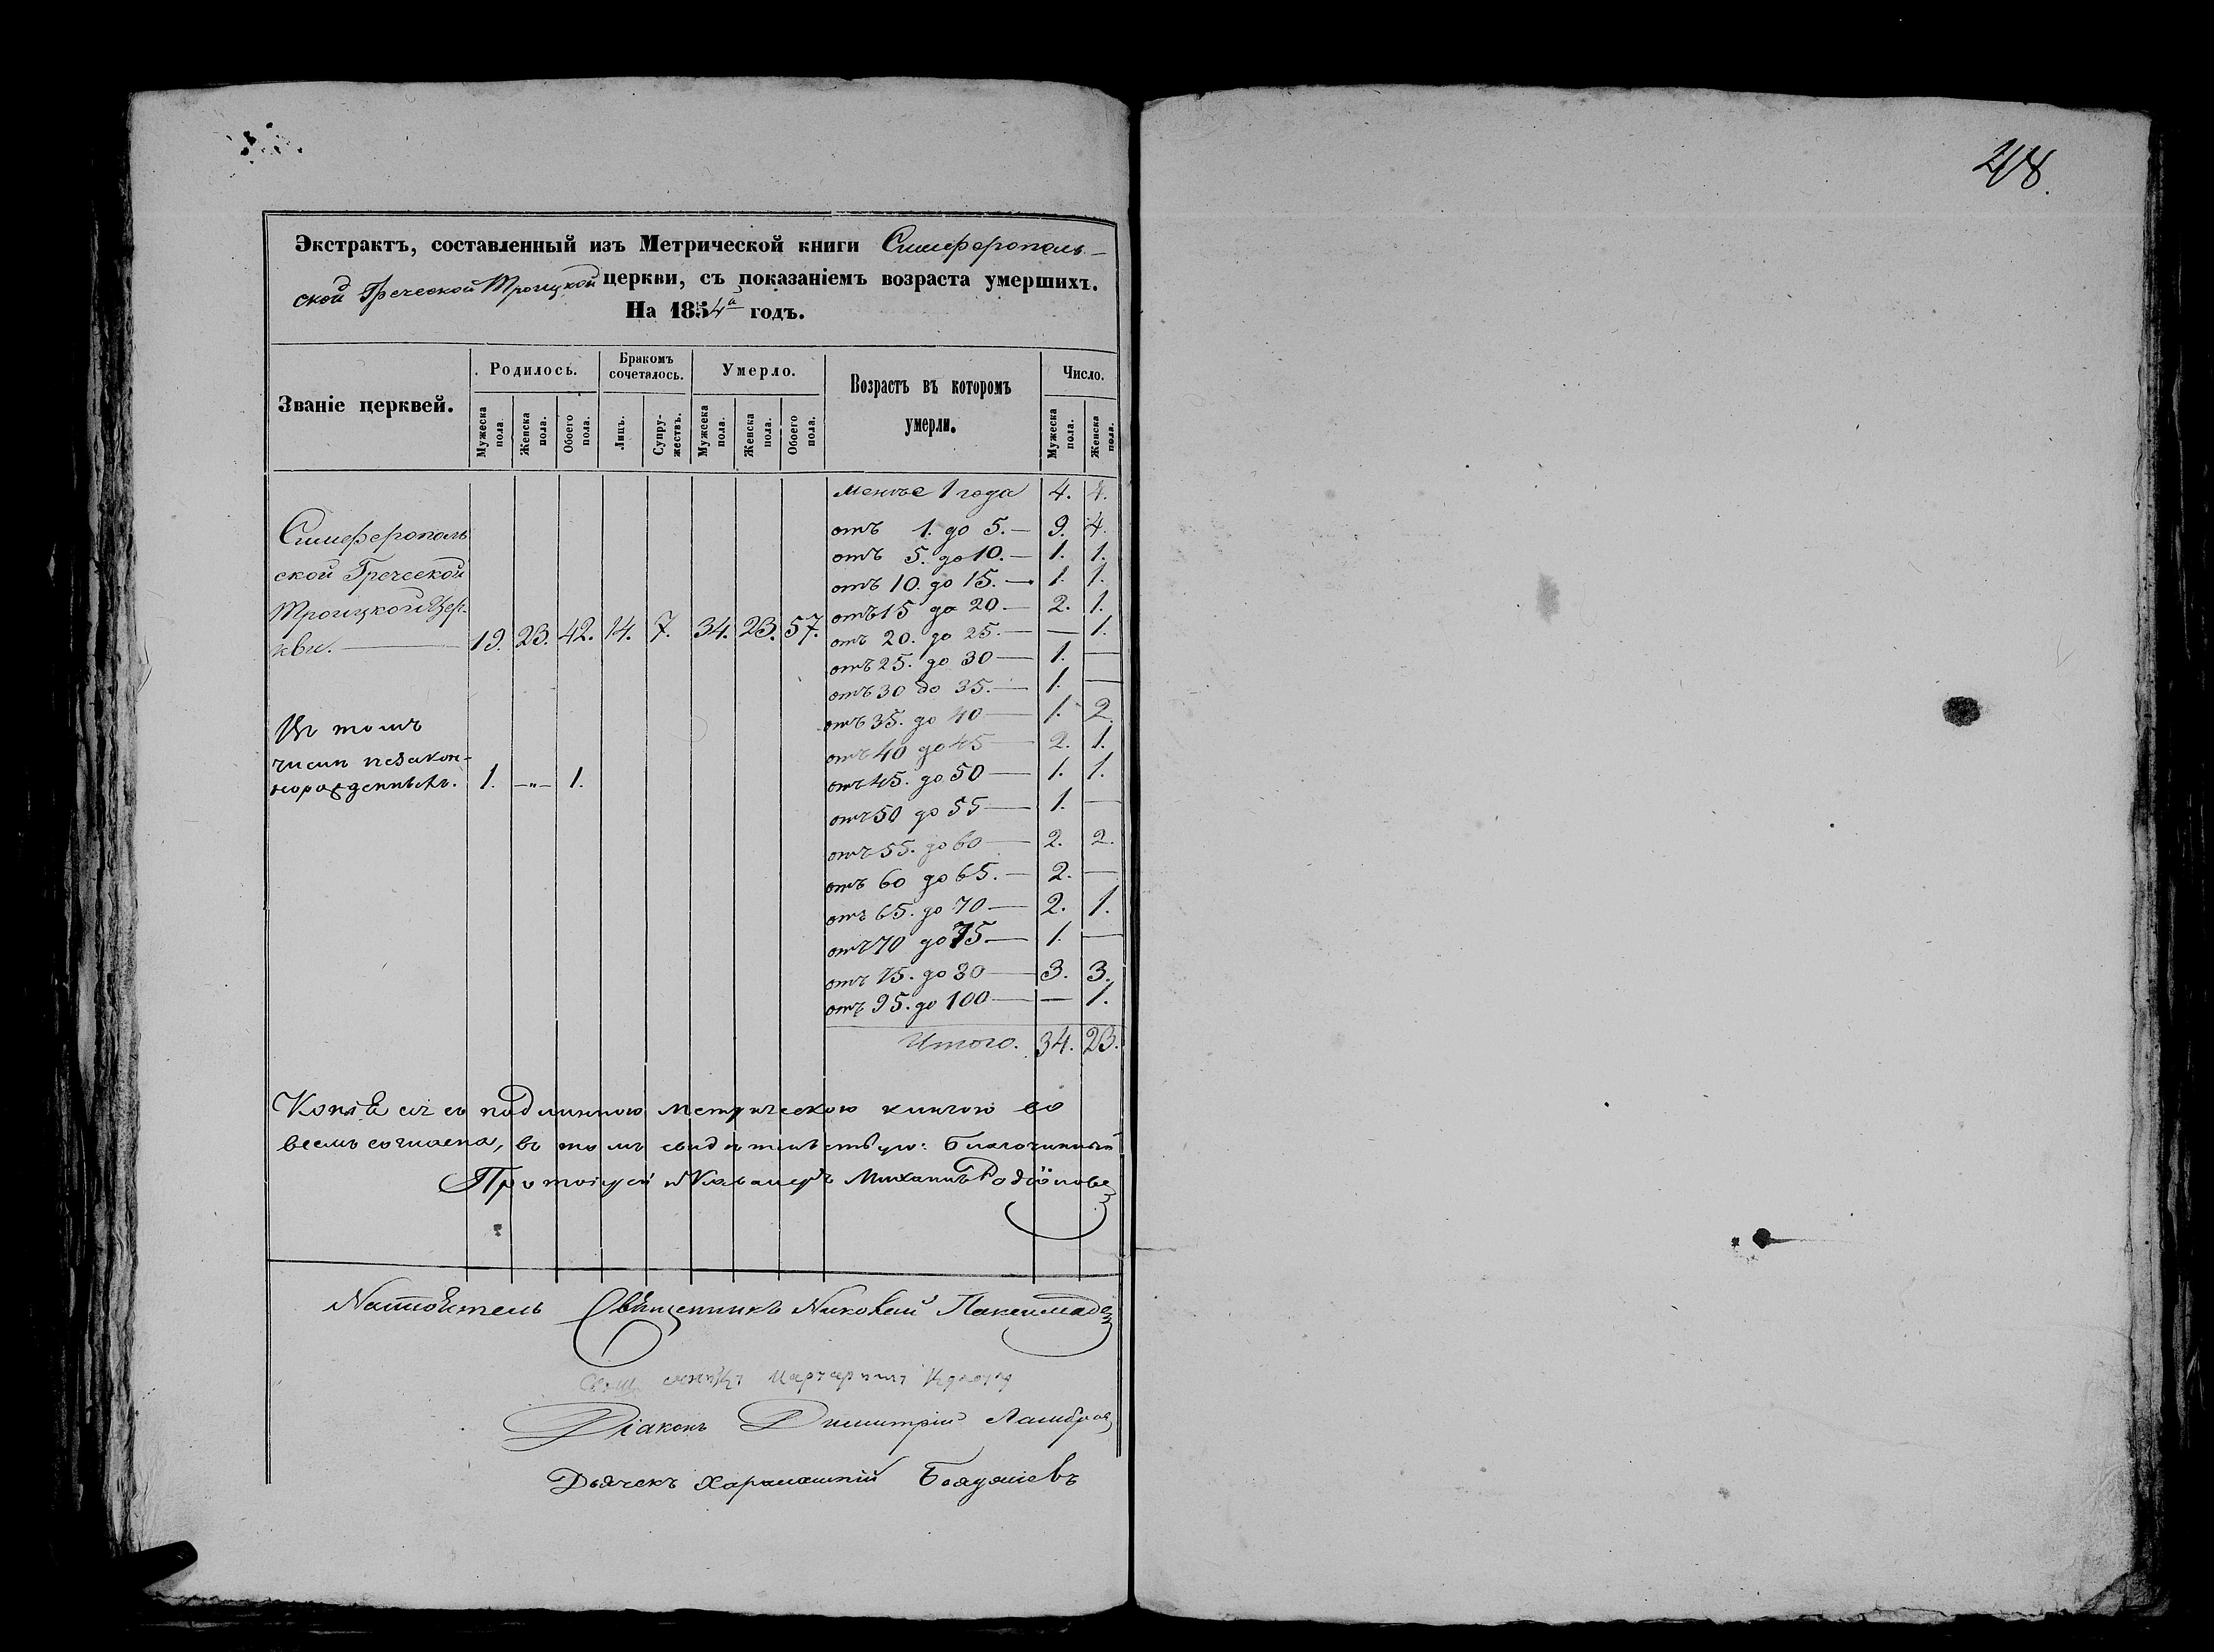 248.
Экстрактъ, составленный изъ Метрической книги Симферополь-
ской Греческой Троицкой церкви, съ показаніемъ возраста умершихъ.
На 1854а годъ.
Званіе церквей.
Родилось.
Бракомъ сочеталось.
Умерло.
Возрастъ въ котором умерли.
Число.
Мужеска пола.
Женска пола.
Обоего пола.
Лицъ.
Супружествъ.
Мужеска пола.
Женска пола.
Обоего пола.
Мужеска пола.
Женска пола.
Симферополь
ской Греческой
Троицкой Цер-
кви. — 19. 23. 42. 14. 7. 34. 23. 57.
Въ томъ
числѣ незакон-
норожденныхъ. 1. —„— 1.
Менѣе 1 года 4. 4.
отъ 1. до 5. — 9. 4.
отъ 5. до 10. — 1. 1.
отъ 10. до 15. — 1. 1.
отъ 15 до 20 — 2. 1.
отъ 20. до 25. — — 1.
отъ 25. до 30 — 1. —
отъ 30 до 35. — 1. —
отъ 35. до 40 — 1. 2.
отъ 40 до 45 — 2. 1.
отъ 45. до 50 — 1. 1.
отъ 50 до 55 — 1. —
отъ 55. до 60 — 2. 2.
отъ 60 до 65. — 2. —
отъ 65. до 70 — 2. 1.
отъ 70 до 75 — 1. —
отъ 75. до 80 — 3. 3.
отъ 95. до 100 — — 1.
Итого. 34. 23.
Копія сія съ подлинною метрическою книгою во
всемъ согласна, въ томъ свидѣтельствую: Благочинный
Протоіерей и Кавалеръ Михаилъ Родіоновъ
Настоятель Священникъ Николай Паксимадз
Священникъ
Діаконъ Димитрій Ламбров
Дьячекъ Харлампій